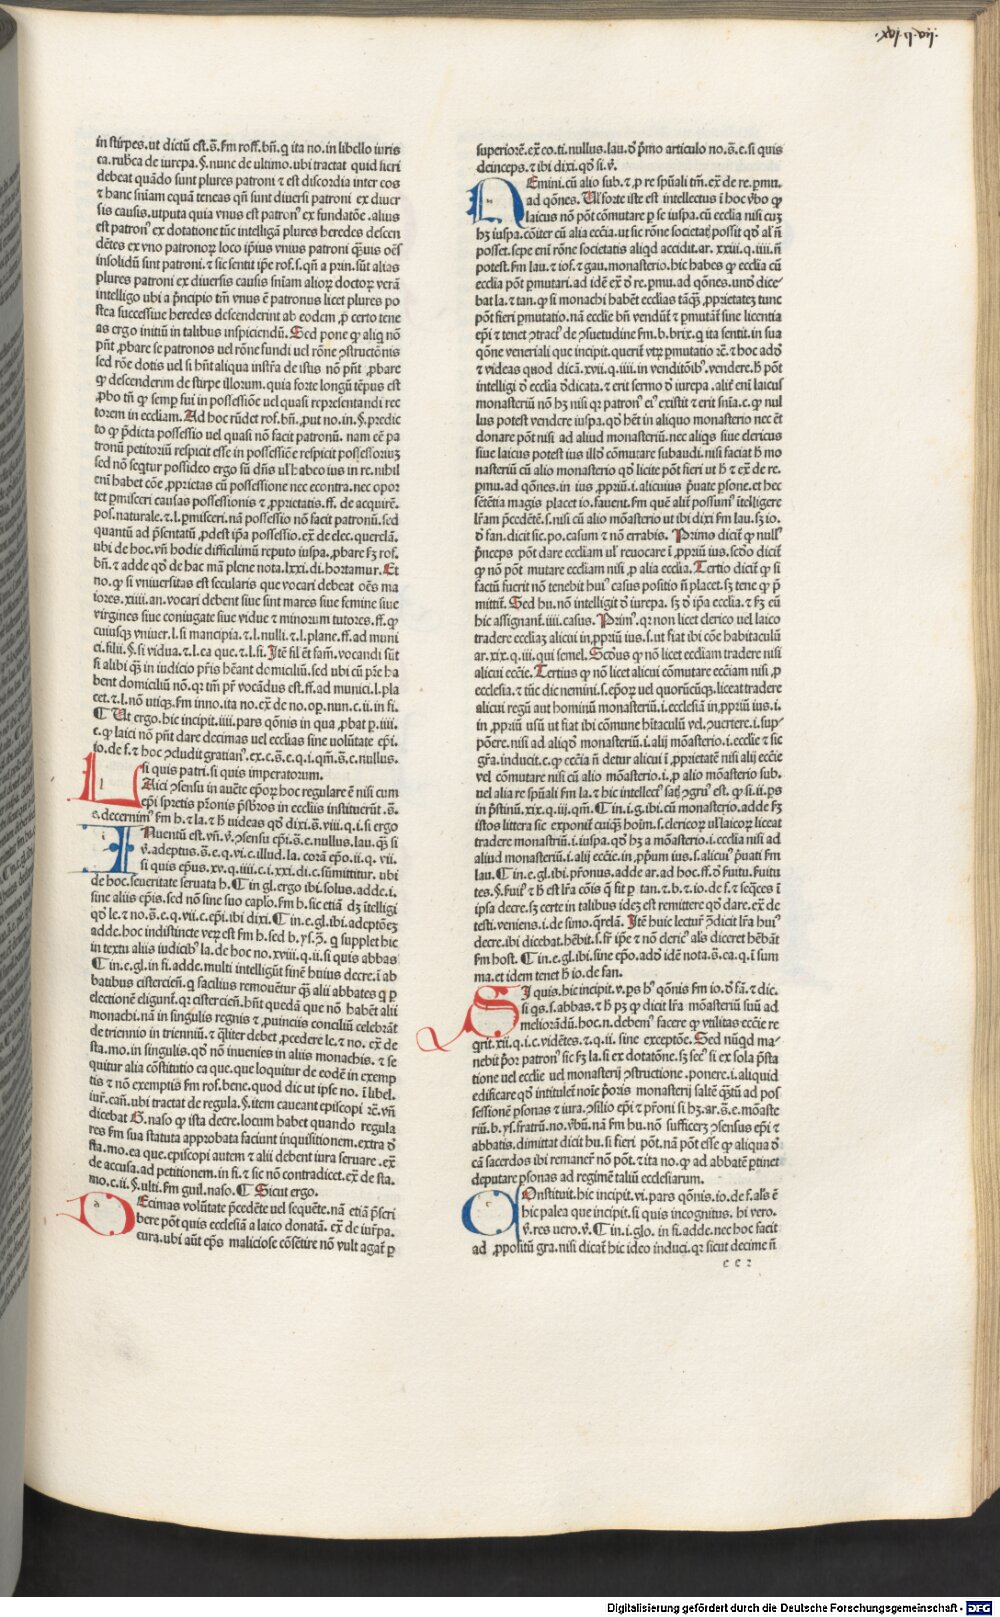 .xvj.q.vij.
in stirpes.ut dictū est.s̄.fm roff.bn̄.q ita no.in libello iuris
ca.rub̄ca de iurepa.§.nunc de ultimo.ubi tractat quid fieri
debeat quādo sunt plures patroni ⁊ est discordia inter eos
⁊ hanc sn̄iam equā teneas qn̄ sunt diuersi patroni ex diuer
sis causis.utputa quia vnus est patronꝰ ex fundatōe.alius
est patronꝰ ex dotatione tūc intelligā plures heredes descen
dētes ex vno patronoꝝ loco ip̄ius vnius patroni
insolidū sint patroni.⁊ sic sentit ip̄e rof.
plures patroni ex diuersis causis sn̄iam alioꝝ doctoꝝ verā
intelligo ubi a p̄ncipio tm̄ vnus ē patronus licet plures po
stea successiue heredes descenderint ab eodem ,p certo tene
as ergo initiū in talibus inspiciendū.Sed pone ꝙ aliq nō
pn̄t ,pbare se patronos uel rōne fundi uel rōne ↄstructōnis
sed rōe dotis uel si hn̄t aliqua instr̄a de istus nō pn̄t ,pbare
ꝙ descenderim de stirpe illorum.quia forte longū tēpus est
,pbo tn̄ ꝙ semp fui in possessiōe uel quasi repr̄esentandi rec
torem in eccl̄iam.Ad hoc rn̄det rof.bn̄.,put no.in.§.predic
to ꝙ p̄dicta possessio uel quasi nō facit patronū. nam eē pa
tronū petitoriū respicit esse in possessiōe respicit possessoriuꝫ
sed nō seqt̄ur possideo ergo sū dn̄s ul̓ habeo ius in re.nihil
eni̅ habet cōe ,pprietas cū possessione nec econtra.nec opor
tet pmisceri causas possessionis ⁊ ,pprietatis.ff. de acquirē.
pos.naturale.⁊.l.pmisceri.nā possessio nō facit patronū.sed
quantū ad p̄sentatū ,pdest ip̄a possessio.ex̄ de elec.querelā.
ubi de hoc.vn̄ hodie difficilimū reputo iuspa.,pbare fꝫ rof.
bn̄.⁊ adde qđ de hac mā plene nota.lxxi.di.hortamur.Et
no.ꝙ si vniuersitas est secularis que vocari debeat oēs ma
iores.xiiii.an.vocari debent siue sint mares siue femine siue
virgines siue coniugate siue vidue ⁊ minorum tutores.ff.ꝙ
cuiusqꝫ vniuer.l.si mancipia.⁊.l.nulli.⁊.l.plane.ff.ad muni
ci.filii.§.si vidua.⁊.l.ea que.⁊.l.si.Itē fil ēt fam̄.vocandi sūt
si alibi in iudicio p̄ris hēant domiciliū.sed ubi cū p̄re ha
bent domiciliū nō.qꝛ tm̄ pr̄ vocādus est.ff.ad munici.l.pla
cet.⁊.l.nō utiqꝫ.fm inno.ita no.ex̄ de no.op̄.nun.c.ii.in fi.
¶ Ut ergo.hic incipit.iiii.pars qōnis in qua ,pbat p.iiii.
c.ꝙ laici nō pn̄t dare decimas uel ecclias sine volūtate ep̄i.
io.de f.⁊ hoc ↄcludit gratianꝰ.
si quis patri.si quis imperatorum.
LAici ↄsensu in aucte ep̄oꝝ hoc regulare ē nisi cum
ep̄i spretis p̄ronis p̄sb̄ros in ecclīis instituerūt.s̄.
e.decernimꝰ fm h.⁊ la.⁊ h̄ uideas qđ dixi.s̄.viii.q.i.si ergo
INuentū est.vn̄.v̄.ↄsensu ep̄i.s̄.e.nullus.lau.qꝫ si
v̄.adeptus.s̄.e.q.vi.c.illud.la.corā ep̄o.ii.q.vii.
si quis ep̄us.xv.q.iiii.c.i.xxi.di.c.sūmittitur.ubi
de hoc.seueritate seruata h.¶ in gl.ergo ibi.solus.adde.i.
sine aliis ep̄is.sed nō sine suo cap̄lo.fm h.sic etiā dꝫ ītelligi
qđ le.⁊ no.s̄.e.q.vii.c.ep̄i.ibi dixi.¶ in.e.gl.ibi.adeptōeꝫ
adde.hoc indistincte veꝝ est fm h.sed b.ys.p̄. q supplet hic
in textu aliis iudicibꝰ la.de hoc no.xviii.q.ii.si quis abbas
¶ in.e.gl.in fi.adde.multi intelligūt finē huius decre.ī ab
batibus cistercien̄.q facilius remouētur qꝫ alii abbates q p
electionē eligunt̄.qꝛ cistercien̄.hn̄t quedā que nō habēt alii
monachi.nā in singulis regnis ⁊ ,puinciis conciliū celebrāt
de triennio in trienniū.⁊ qliter debet ,pcedere le.⁊ no. ex̄ de
sta.mo.in singulis.qđ nō inuenies in aliis monachis. ⁊ se
quitur alia cōstitutio ea que.que loquitur de eodē in exemp
tis ⁊ nō exemptis fm rof.bene.quod dic ut ipse no.ī libel.
iur̄.can̄.ubi tractat de regula.§.item caueant episcopi ⁊c̄.vn̄
dicebat G.naso ꝙ ista decre.locum habet quando regula
res fm sua statuta approbata faciunt inquisitionem.extra đ
sta.mo.ea que.episcopi autem ⁊ alii debent iura seruare.ex̄
de accusa.ad petitionem.in fi.⁊ sic nō contradicet.ex̄ de sta.
mo.c.ii.§.ulti.fm guil.naso.¶ Sicut ergo.
DEcimas volūtate p̄cedēte uel sequēte.nā etiā p̄scri
bere pōt quis ecclesiā a laico donatā. ex̄ de iur̄pa.
cura.ubi aūt ep̄s maliciose cōsētire nō vult agat̄ p
superiorē.ex̄ co.ti.nullus.lau.đ p̄mo articulo no.s̄.e.si quis
deinceps.⁊ ibi dixi.qđ si.v̄.
NEmini.cū alio sub.⁊ ,p re sp̄uāli tm̄.ex̄ de re.pmu.
ad qōnes. Ul̓ forte iste est intellectus ī hoc v̄bo ꝙ
laicus nō pōt cōmutare p se iuspa.cū eccl̄ia nisi cuꝫ
hꝫ iuspa.cōiter cū alia eccīa.ut sic rōne societat̄ possit qđ al̓ n̄
posset.sepe eni̅ rōne societatis aliqđ accidit.ar. xxiii.q.iiii.n̄
potest.fm lau.⁊ iof.⁊ gau.monasterio.hic habes ꝙ ecclīa cū
eccl̄ia pōt pmutari.ad idē ex̄ đ re.pmu.ad qōnes.unđ dice
bat la.⁊ tan.ꝙ si monachi habēt ecclias tāqꝫ ,pprietateꝫ tunc
pōt fieri pmutatio.nā ecclie bn̄ vendūt̄ ⁊ pmutāt̄ sine licentia
ep̄i ⁊ tenet ↄtractꝰ de ↄsuetudine fm.b.brix.q ita sentit.in sua
qōne veneriali que incipit.querit̄ vtꝝ pmutatio ⁊c̄.⁊ hoc adđ
⁊ videas quod dicā.xvii.q.iiii.in venditōibꝰ.vendere.h̄ pōt
intelligi đ ecclīa đdicata.⁊ erit sermo đ iurepa.alit̄ eni̅ laicus
monasteriū nō hꝫ nisi qꝛ patronꝰ eiꝰ existit ⁊ erit sn̄ia.c.ꝙ nul
lus potest vendere iuspa.qđ hēt in aliquo monasterio nec ēt
donare pōt nisi ad aliud monasteriū.nec aliqs siue clericus
siue laicus potest ius illđ cōmutare subaudi.nisi faciat h̄ mo
nasteriū cū alio monasterio qđ licite pōt fieri ut h̄ ⁊ ex̄ de re.
pmu.ad qōnes.in ius ,ppriū.i.alicuius p̄uate psone.et hec
sētētia magis placet io.fauent̄.fm quē alit̄ possumꝰ ītelligere
lr̄am p̄cedētē.s.nisi cū alio mōasterio ut ibi dixi fm lau.sꝫ io.
đ fan.dicit sic.po.casum ⁊ nō errabis. Primo dicit̄ ꝙ nullꝰ
p̄nceps pōt dare eccl̄iam ul̓ reuocare ī ,ppriū ius.scđo dicit̄
ꝙ nō pōt mutare eccl̄iam nisi ,p alia eccl̄ia.Tertio dicit̄ ꝙ si
factū fuerit nō tenebit huiꝰ casus positio n̄ placet.sꝫ tene ꝙ p̄
mittit̄. Sed hu.nō intelligit đ iurepa. sꝫ đ ip̄a eccl̄ia.⁊ fꝫ eū
hic assignant̄.iiii.casus. Primꝰ.qꝛ non licet clerico uel laico
tradere eccl̄iaꝫ alicui in,ppriū ius.s.ut fiat ibi cōe habitaculū
ar.xix.q.iii.qui semel.Scđus ꝙ nō licet eccl̄iam tradere nisi
alicui eccl̄ie.Tertius ꝙ nō licet alicui cōmutare eccl̄iam nisi ,p
ecclesia.⁊ tūc dic nemini.s.ep̄oꝝ uel quorūcūqꝫ.liceat tradere
alicui regū aut hominū monasteriū.i.ecclesiā in,ppriū ius.i.
in ,ppriū usū ut fiat ibi cōmune hītaculū vel.ↄuertere.i.sup
pōere.nisi ad aliqđ monasteriū.i.alij mōasterio.i.ecclie ⁊ sic
gr̄a.inducit.c.ꝙ eccīa n̄ detur alicui ī ,pprietatē nisi alij eccīe
vel cōmutare nisi cū alio mōasterio.i.,p alio mōasterio sub.
uel alia re sp̄uāli fm la.⁊ hic intellecꝰ sat̄ ↄgruꝰ est. ꝙ si.ii.ps
in p̄stinū.xix.q.iii.qm̄.¶ in.i.g.ibi.cū monasterio.adde sꝫ
istos littera sic exponit̄ cuiqꝫ hoim̄.s.clericoꝝ ul̓ laicoꝝ liceat
tradere monastriū.i.iuspa.qđ hꝫ a mōasterio.i.eccl̄ia nisi ad
aliud monasteriū.i.alij eccīe.in ,ppum ius.s.alicuiꝰ p̄uati fm
lau.¶ in.e.gl.ibi.p̄ronus.adde ar.ad hoc.ff.đ ſuitu.ſuitu
tes.§.fuiꝰ ⁊ h̄ est lr̄a cōis q̄ sit p. tan.⁊ b.⁊ io.de f.⁊ seqēs ī
ipsa decre.sꝫ certe in talibus ideꝫ est remittere qđ dare.ex̄ de
testi.veniens.i.de simo.q̄relā. Itē huic lectur̄ ↄdicit lr̄a huiꝰ
decre.ibi dicebat.hēbit.s.fr̄ ip̄e ⁊ nō dericꝰ als diceret hēbāt
fm host.¶ in.e.gl.ibi.sine ep̄o.adđ idē nota.s̄.ea.q.i.sum
ma.et idem tenet h̄ io.de fan.
SI quis.hic incipit.v.ps hꝰ qōnis fm io.đ fā.⁊ dic.
si qs.s.abbas.⁊ h̄ pꝫ ꝙ dicit lr̄a mōasteriū suū ad
meliorādū.hoc.n.debemꝰ facere ꝙ vtilitas eccīe re
grit.xii.q.i.c.vidētes.⁊.q.ii. sine exceptōe. Sed nūqđ ma
nebit p̄or patronꝰ sic sꝫ la.si ex dotatōne.sꝫ secꝰ si ex sola p̄sta
tione uel ecclie uel monasterij ↄstructione .ponere.i.aliquid
edificare qđ intitulet̄ noīe p̄oris monasterij saltē q̄tū ad pos
sessionē psonas ⁊ iura.ↄsilio ep̄i ⁊ p̄roni si hꝫ.ar.s̄.e.mōaste
riū.b.ys.fratrū.no.v̄bū.nā fm hu.nō sufficerꝫ ↄsensus ep̄i ⁊
abbatis.dimittat dicit hu.si fieri pōt.nā pōt esse ꝙ aliqua đ
cā sacerdos ibi remaner̄ nō pōt.⁊ ita no.ꝙ ad abbatē p̄tinet
deputare psonas ad regimē taliū ecclesiarum.
COnstituit.hic incipit.vi.pars qōnis.io.de f.als ē
hic palea que incipit.si quis incognitus. hi vero.
v̄.res uero.v̄.¶ in.i.glo. in fi.adde.nec hoc facit
ad ,ppositū gra.nisi dicat̄ hic ideo induci.qꝛ sicut decime n̄
c c 2
Digitalisierung gefördert durch die Deutsche Forschungsgemeinschaft - DFG